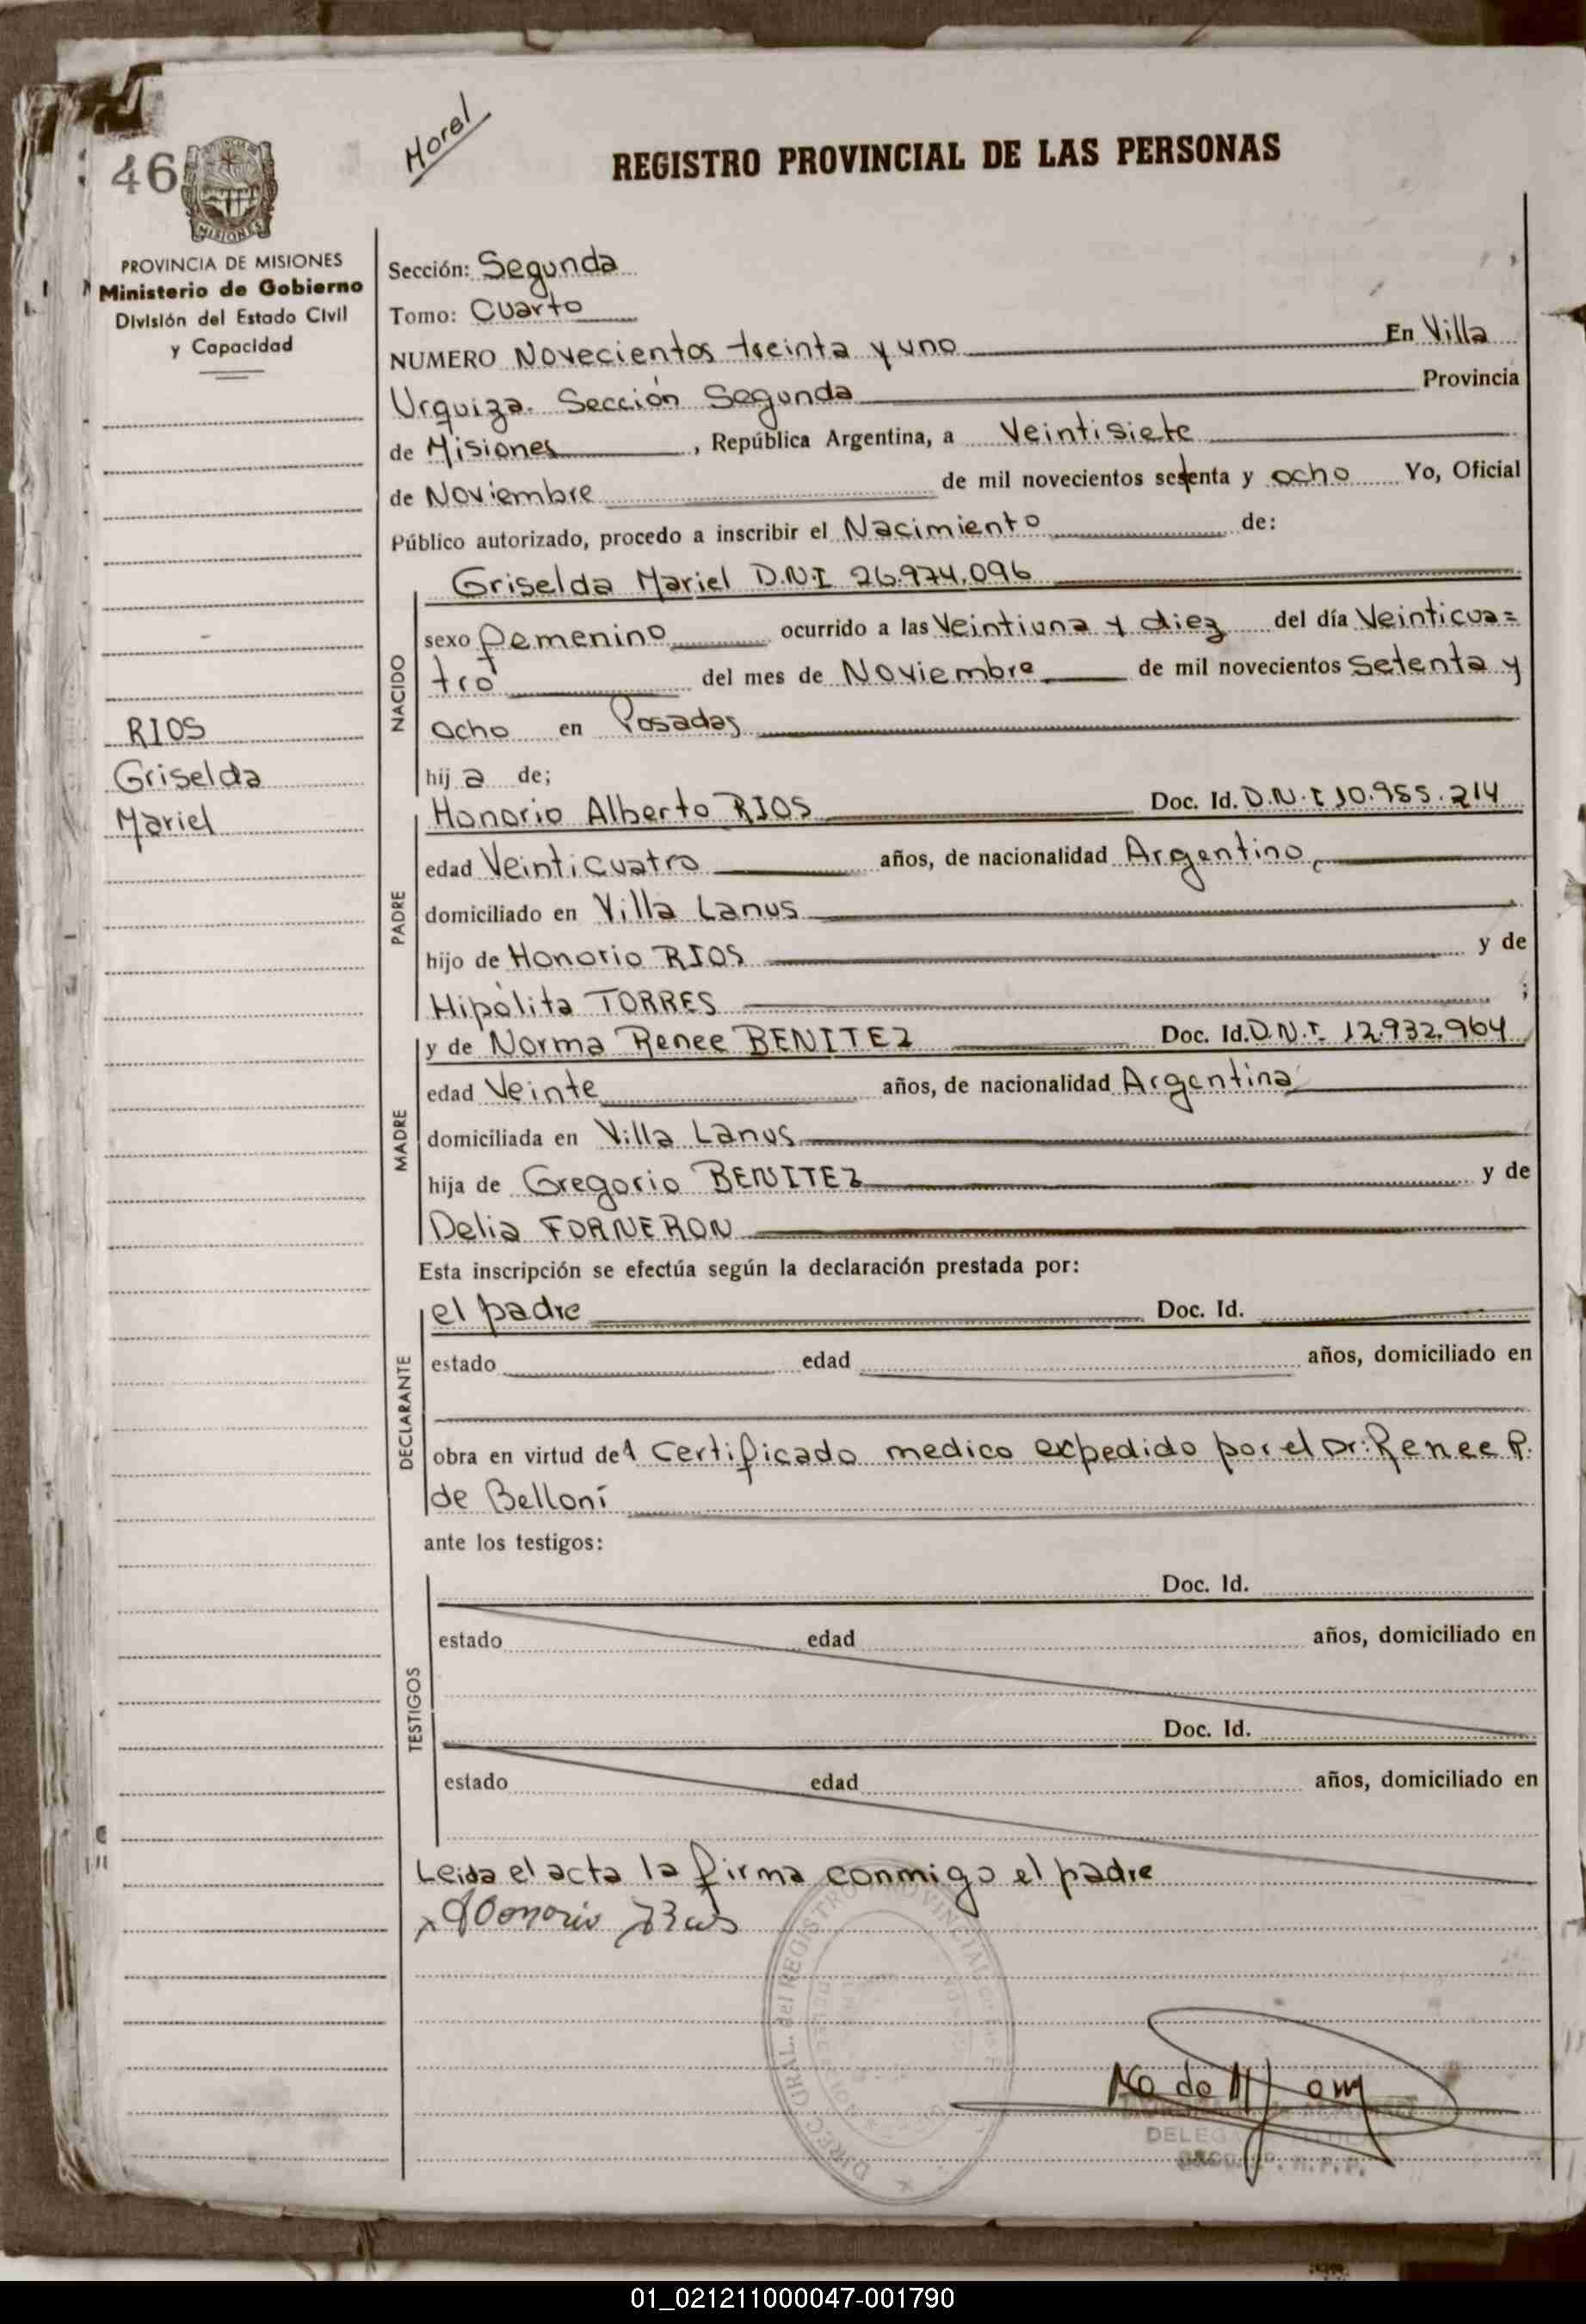 46
Horel
REGISTRO PROVINCIAL DE LAS PERSONAS
MISIONES
PROVINCIA DE MISIONES
Ministerio de Gobierno
División del Estado Civil
y Capacidad
RIOS
Griselda
Mariel
Sección: Segunda
Tomo: Cuarto
NUMERO Novecientos treinta y uno En Villa
Urquiza. Sección Segunda Provincia
de Misiones, República Argentina, a Veintisiete
de Noviembre de mil novecientos setenta y ocho Yo, Oficial
Público autorizado, procedo a inscribir el Nacimiento de:
NACIDO
Griselda Mariel D.N.I 26.974.096
sexo femenino ocurrido a las Veintiuna y diez del día Veinticua=
tro del mes de Noviembre de mil novecientos setenta y
ocho en Posadas
hij a de;
PADRE
Honorio Alberto RIOS Doc. Id. D.N.I 10.955.214
edad Veinticuatro años, de nacionalidad Argentino,
domiciliado en Villa Lanus
hijo de Honorio RIOS y de
Hipólita TORRES ;
MADRE
y de Norma Renee BENITEZ Doc. Id. D.N.I. 12.932.964
edad Veinte años, de nacionalidad Argentina
domiciliada en Villa Lanus
hija de Gregorio BENITEZ y de
Delia FORNERON
Esta inscripción se efectúa según la declaración prestada por:
DECLARANTE
el padre Doc. Id.
estado edad años, domiciliado en
obra en virtud del certificado medico expedido por el Dr: Renee R.
de Belloni
ante los testigos:
TESTIGOS
Doc. Id.
estado edad años, domiciliado en
Doc. Id.
estado edad años, domiciliado en
Leida el acta la firma conmigo el padre
x Honorio Rios
DIREC. GRAL. del REGISTRO PROVINCIAL
01_021211000047-001790